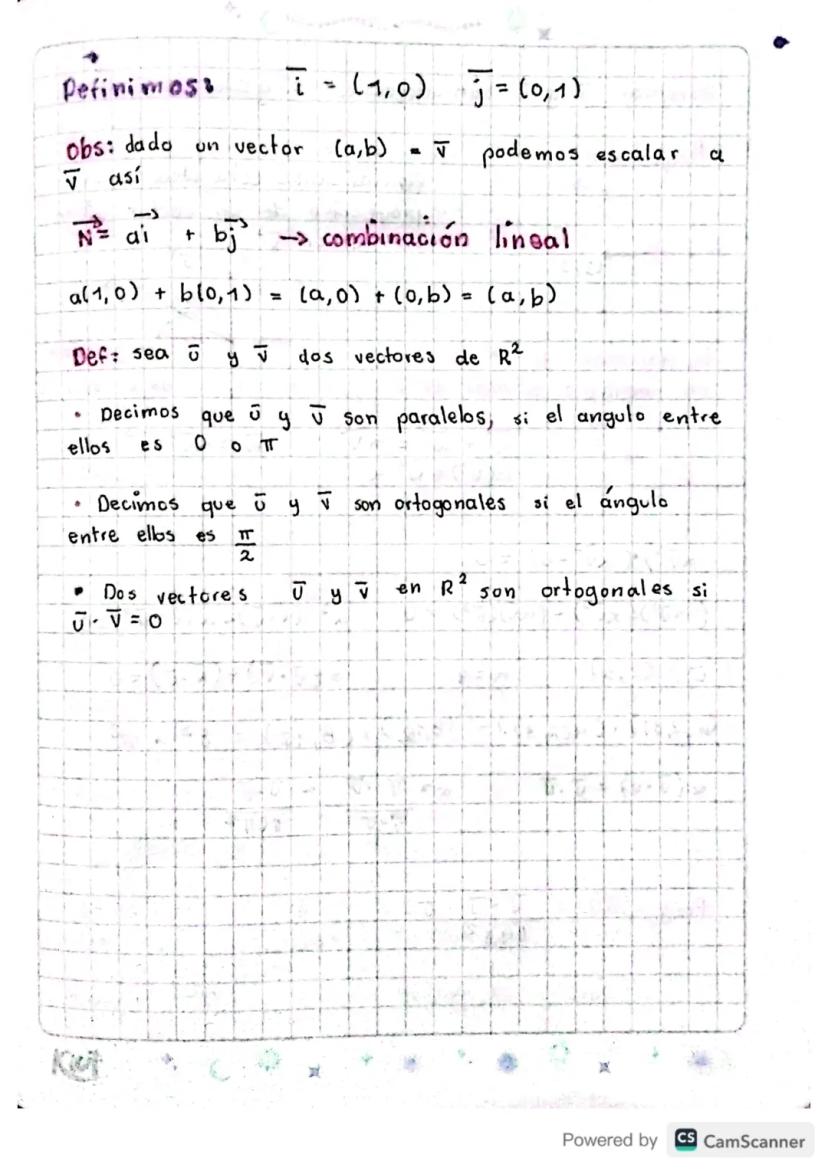 Definimos: i̅ = (1,0) j̅ = (0,1)
obs: dado un vector (a,b) = v̅ podemos escalar a
v̅ así
N⃗ = ai⃗ + bj⃗ → combinación lineal
a(1,0) + b(0,1) = (a,0) + (0,b) = (a,b)
Def: sea u̅ y v̅ dos vectores de R²
• Decimos que u̅ y v̅ son paralelos, si el angulo entre
ellos es 0 o π
• Decimos que u̅ y v̅ son ortogonales si el ángulo
entre ellos es π/2
• Dos vectores u̅ y v̅ en R² son ortogonales si
u̅ · v̅ = 0
Powered by CS CamScanner